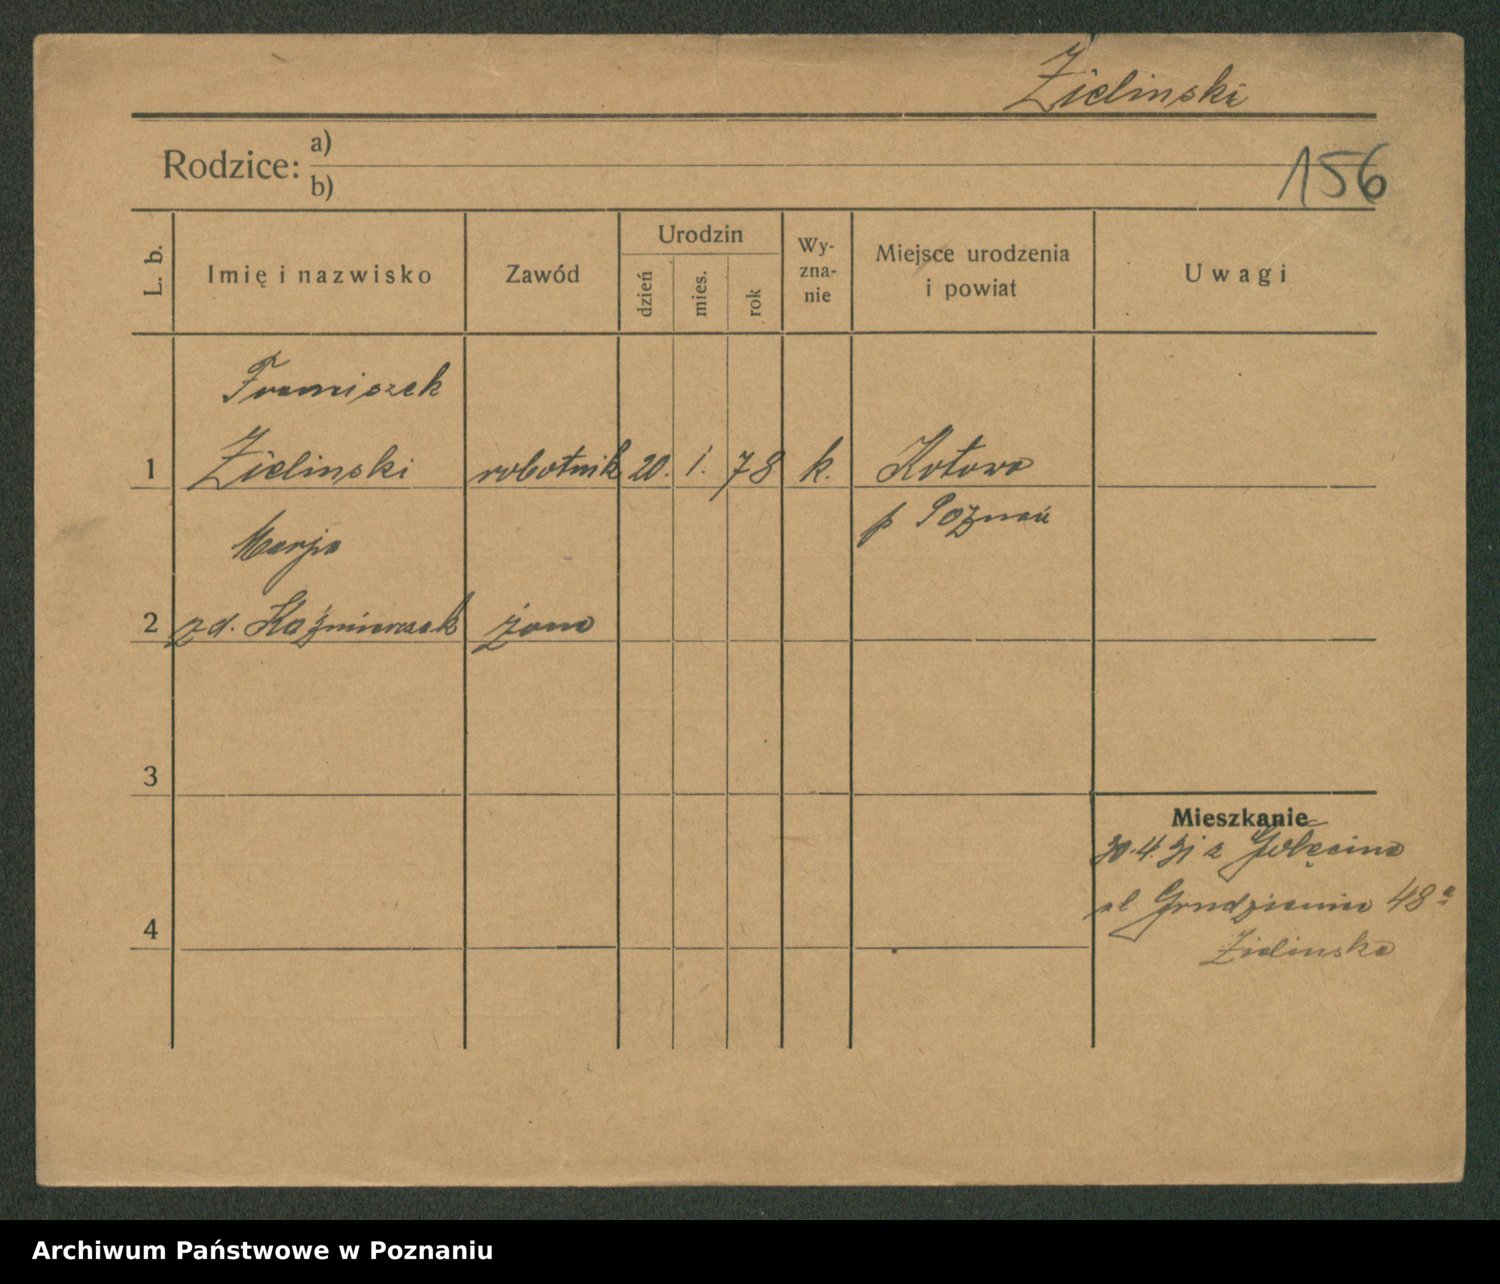 Zielinski
Rodzice: a)
b)
156
L. b.
Imię i nazwisko
Zawód
Urodzin
dzień
mies.
rok
Wy-
zna-
nie
Miejsce urodzenia
i powiat
Uwagi
Franciszek
1 Zielinski robotnik 20. 1. 78 k. Kotowo
p Poznań
Marja
2 zd. Kaźmierczak żona
3
Mieszkanie
30.4.31 z Golęcina
ul Grudzieniec 48a
Zielinska
4
Archiwum Państwowe w Poznaniu